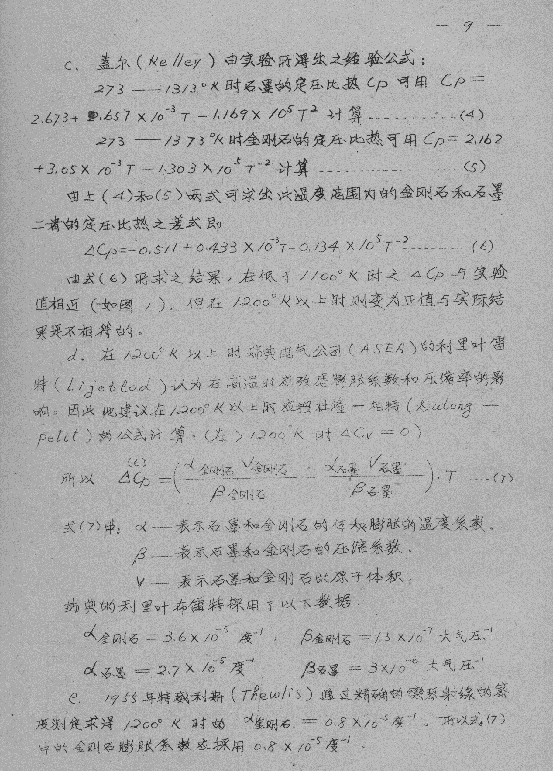 — 9 —
C、盖尔(Kelley)由实验所得出之经验公式：
273 — 1313°K时石墨的定压比热Cp可用Cp=
2.673+0.657×10⁻³T-1.169×10⁵T² 计算 ………(4)
273 — 1373°K时金刚石的定压比热可用Cp=2.162
+3.05×10⁻³T-1.303×10⁵T⁻² 计算 ………(5)
由上(4)和(5)两式可求出此温度范围内的金刚石和石墨
二者的定压比热之差式即
ΔCp=-0.511+0.433×10⁻³T-0.134×10⁵T⁻² ………(6)
由式(6)所求之结果，在低于1100°K时之ΔCp与实验
值相近(如图1)，但在1200°K以上时则变为正值与实际结
果是不相符的。
d、在1200°K以上时瑞典电气公司(ASEA)的利里叶雷
特(Liljeblad)认为在高温时必须考虑膨胀系数和压缩率的影
响。因此他建议在1200°K以上时应按杜隆一珀特(Dulong —
Petit)的公式计算，(在>1200°K时ΔCv=0)
所以 ΔCp=(α金刚石V金刚石/β金刚石 - α石墨V石墨/β石墨)·T ……(7)
式(7)中：α — 表示石墨和金刚石的体积膨胀的温度系数。
β — 表示石墨和金刚石的压缩系数。
V — 表示石墨和金刚石的原子体积
瑞典的利里叶布雷特採用了以下数据
α金刚石=3.6×10⁻⁵度⁻¹， β金刚石=1.5×10⁻⁷大气压⁻¹
α石墨=2.7×10⁻⁵度⁻¹ β石墨=3×10⁻⁶大气压⁻¹
e、1955年特利斯(Thewlis)通过精确的射线的
度测定求得1200°K时的α金刚石=0.8×10⁻⁵度⁻¹。所以式(7)
中的金刚石膨胀系数应採用0.8×10⁻⁵度⁻¹.